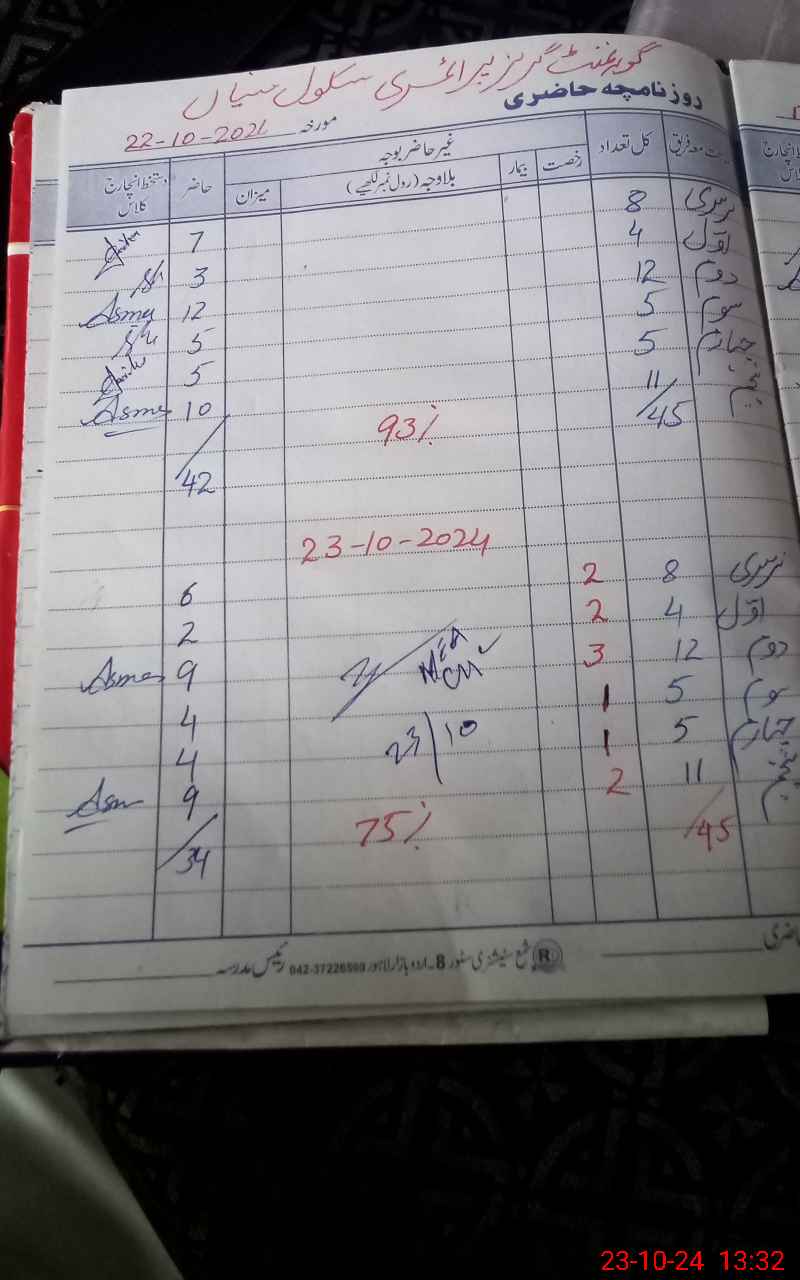 گورنمنٹ گرلز پرائمری سکول
روزنامچہ حاضری
مورخہ 22-10-2024
کل تعداد غیر حاضر بوجہ حاضر دستخط انچارج کلاس
رخصت بیمار بلاوجہ (رول نمبر لکھیے) میزان
نرسری 8 7
اول 4 3
دوم 12 12 Asma
سوم 5 5
چہارم 5 5
پنجم 11 10 Asma
45 93% 42
23-10-2024
نرسری 8 2 6
اول 4 2 2
دوم 12 3 9 Asma
MEA
سوم 5 1 4
چہارم 5 1 23/10 4
پنجم 11 2 9 Asm
45 75% 34
شمع سٹیشنری سٹور 8۔اردو بازار لاہور 042-37226500 رئیس مدرسہ
R
23-10-24 13:32